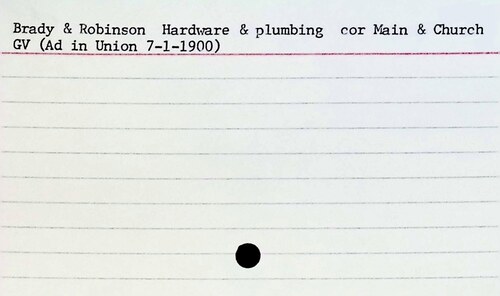 Brady & Robinson Hardware & plumbing cor Main & Church
GV (Ad in Union 7-1-1900)